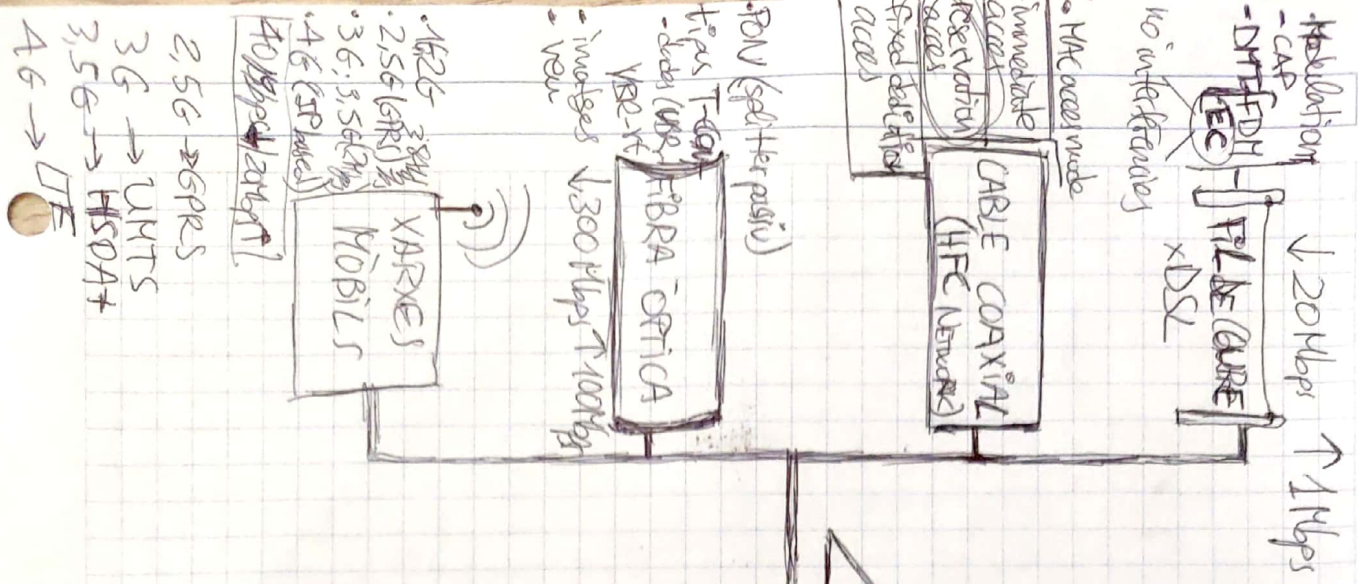 ↓20Mbps ↑1Mbps
·Modulation
-CAP
-DMT FDM
EC
no interferències
FIL DE COURE
xDSL
·MAC access mode
immediate
acces
reservation
acces
fixed
acces
CABLE COAXIAL
(HFC NETWORK)
·PON (splitter passiu)
tipus T-CONT
-dades (UBR,
VBR-rt
- imatges
- veu
FIBRA ÒPTICA
↓300Mbps ↑100Mbps
·1G,2G
·2,5G (GPRS)
·3G;3,5G
·4G (IP based)
XARXES
MÒBILS
2,5G → GPRS
3G → UMTS
3,5G → HSPA+
4G → LTE